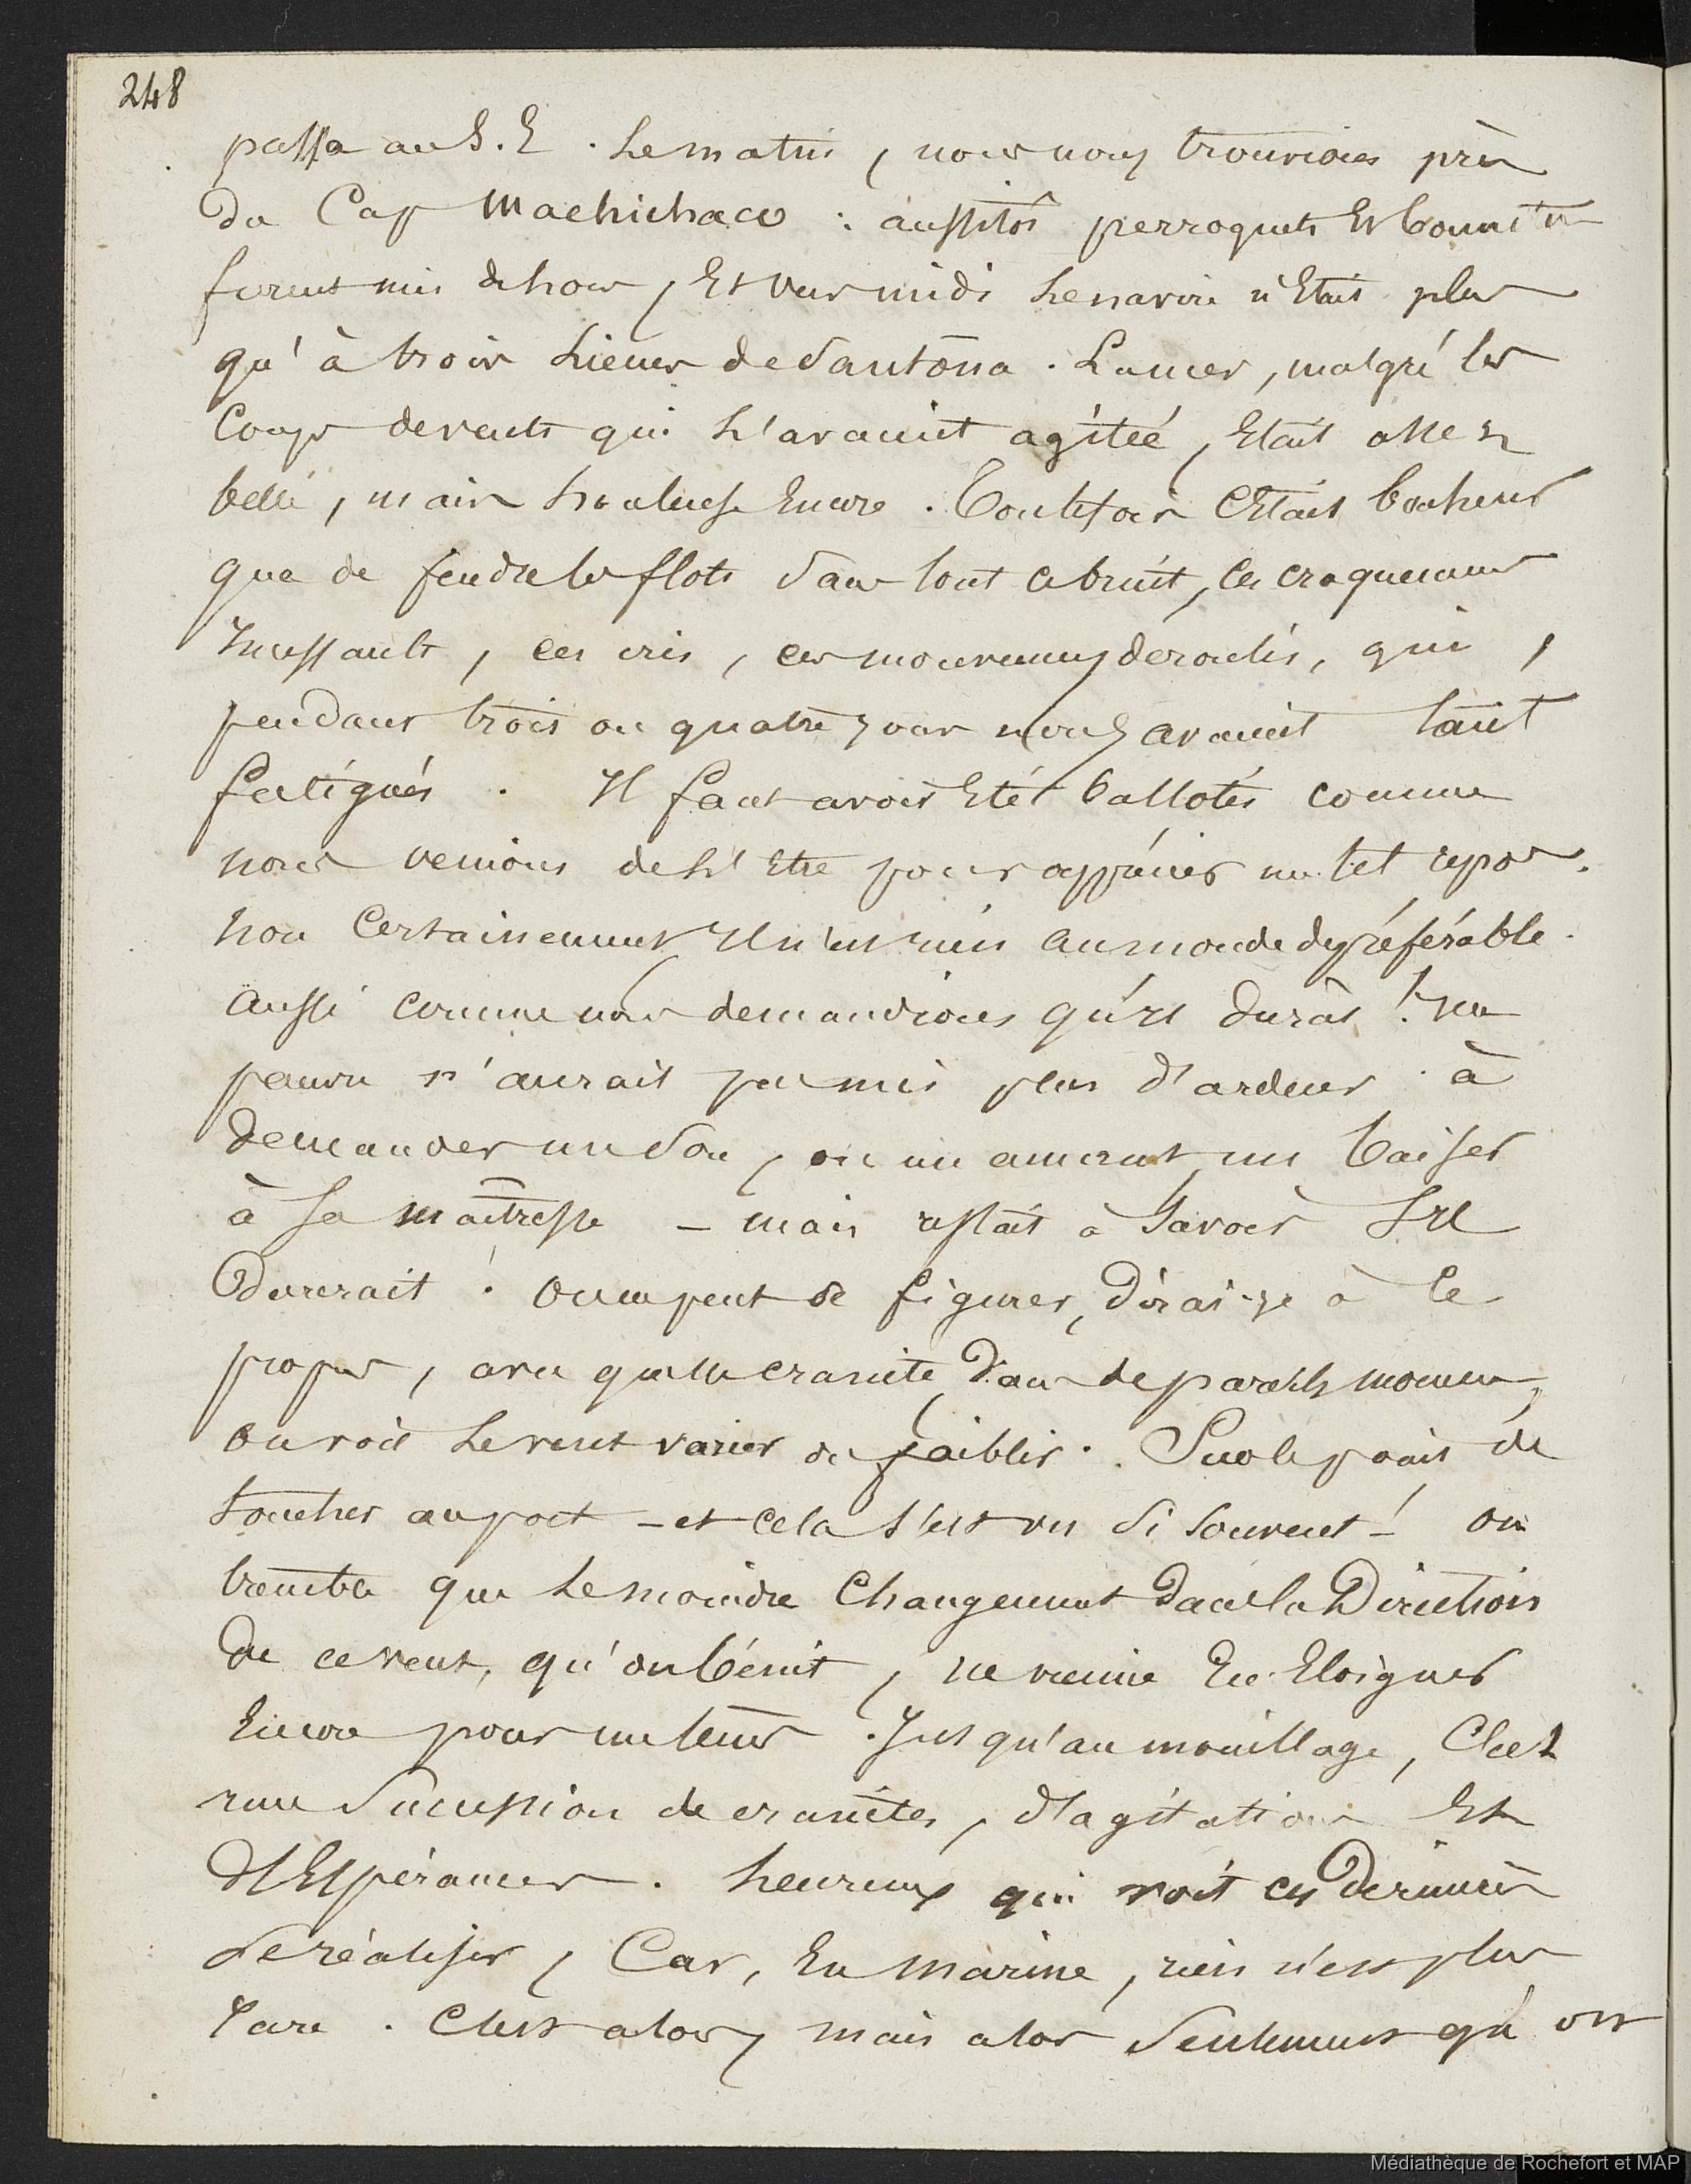 248
passa au S.E. Le matin, nous nous trouvions près
du Cap Machichaco : aussitôt perroquets et bonnettes
furent mis dehors, Et vers midi le navire n'Etait plus
qu'à trois lieues de Santona. La mer, malgré les
Coups de vents qui l'avaient agitée, Etait assez
belle, mais houleuse Encore. Toutefois C'était bonheur
que de fendre les flots sans tout ce bruit, ces craquemens
Incessants, ces cris, ces mouvemens de roulis, qui,
pendant trois ou quatre jours nous avaient tant
fatigués. Il faut avoir Eté ballotés comme
nous venions de l'Etre pour apprécier un tel repos.
non Certainement Il n'est rien au monde de préférable.
aussi comme nous demandions qu'il durât ! un
pauvre n'aurait pu mis plus d'ardeur à
demander un sou, ou un amant un baiser
à sa maîtresse – mais restait à savoir s'Il
Durerait ! on ne peut se figurer, dirai-je à ce
propos, avec quelle crainte, dans de pareils momens,
on voit le vent varier ou faiblir. Sur le point de
toucher au port – et cela s'est vu si souvent – ! on
tremble que le moindre Changement dans la Direction
de ce vent, qu'on bénit, ne vienne En Eloigner
Encore pour un temps. Jusqu'au mouillage, C'est
une succession de craintes, d'agitations Et
d'Espérances. heureux qui voit ces Dernières
se réaliser, Car, En marine, rien n'est plus
rare. C'est alors, mais alors seulement qu'on
Médiathèque de Rochefort et MAP